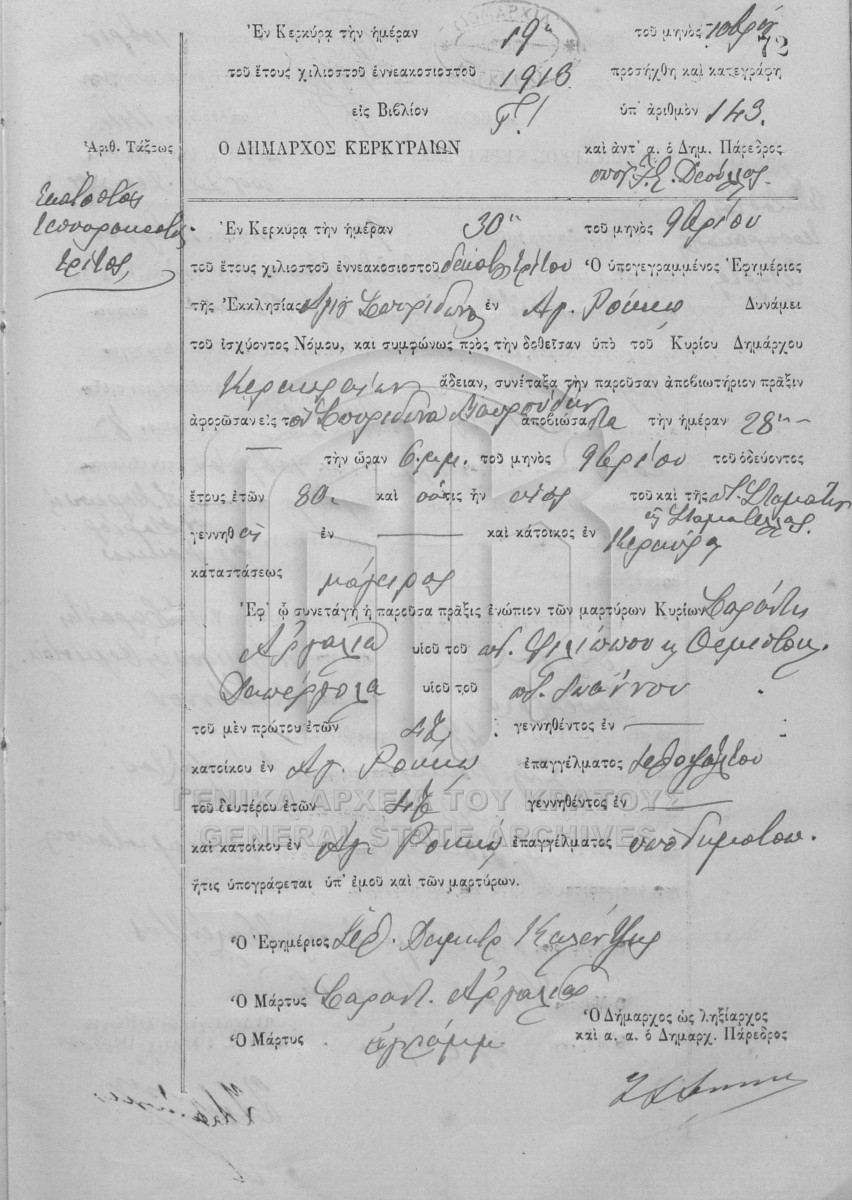 72
Ἐν Κερκύρᾳ τὴν ἡμέραν 19ην τοῦ μηνὸς 10βρίου
τοῦ ἔτους χιλιοστοῦ ἐννεακοσιοστοῦ 1913 προσήχθη καὶ κατεγράφη
εἰς Βιβλίον Γ! ὑπ' ἀριθμὸν 143.
Ἀριθ. Τάξεως Ο ΔΗΜΑΡΧΟΣ ΚΕΡΚΥΡΑΙΩΝ καὶ ἀντ' α. ὁ Δημ. Πάρεδρος
Ἑκατοστὸς
Τεσσαρακοστὸς
τρίτος
Ἐν Κερκύρᾳ τὴν ἡμέραν 30ην τοῦ μηνὸς 9βρίου
τοῦ ἔτους χιλιοστοῦ ἐννεακοσιοστοῦ δεκάτου τρίτου Ὁ ὑπογεγραμμένος Ἐφημέριος
τῆς Ἐκκλησίας Ἁγίου Σπυρίδωνος ἐν Ἁγ. Ρόκκῳ Δυνάμει
τοῦ ἰσχύοντος Νόμου, καὶ συμφώνως πρὸς τὴν δοθεῖσαν ὑπὸ τοῦ Κυρίου Δημάρχου
Κερκυραίων ἄδειαν, συνέταξα τὴν παροῦσαν ἀποβιωτήριον πρᾶξιν
ἀφορῶσαν εἰς τὸν Σπυρίδωνα ἀποβιώσαντα τὴν ἡμέραν 28ην
τὴν ὥραν 6 μ.μ. τοῦ μηνὸς 9βρίου τοῦ ὁδεύοντος
ἔτους ἐτῶν 80 καὶ ὅστις ἦν υἱὸς τοῦ καὶ τῆς ποτ. Σταμάτη
γεννηθεὶς ἐν καὶ κάτοικος ἐν Κερκύρᾳ
καταστάσεως μάγειρος
Ἐφ' ᾧ συνετάγη ἡ παροῦσα πρᾶξις ἐνώπιον τῶν μαρτύρων Κυρίων Σαράντη
Ἀργαλιᾶ υἱοῦ τοῦ ποτ. Φιλίππου κ Θεμιστοκ.
υἱοῦ τοῦ ποτ. Ἰωάννου
τοῦ μὲν πρώτου ἐτῶν γεννηθέντος ἐν
κατοίκου ἐν Ἁγ. Ρόκκῳ ἐπαγγέλματος
τοῦ δευτέρου ἐτῶν γεννηθέντος ἐν
καὶ κατοίκου ἐν Ἁγ. Ρόκκῳ ἐπαγγέλματος ὑποδηματοπ.
ἥτις ὑπογράφεται ὑπ' ἐμοῦ καὶ τῶν μαρτύρων.
Ὁ Ἐφημέριος
Ὁ Μάρτυς Σαράντ. Ἀργαλιᾶς
Ὁ Μάρτυς ἀγράμμ.
Ὁ Δήμαρχος ὡς ληξίαρχος
καὶ α. α. ὁ Δημαρχ. Πάρεδρος
ΓΕΝΙΚΑ ΑΡΧΕΙΑ ΤΟΥ ΚΡΑΤΟΥΣ
GENERAL STATE ARCHIVES